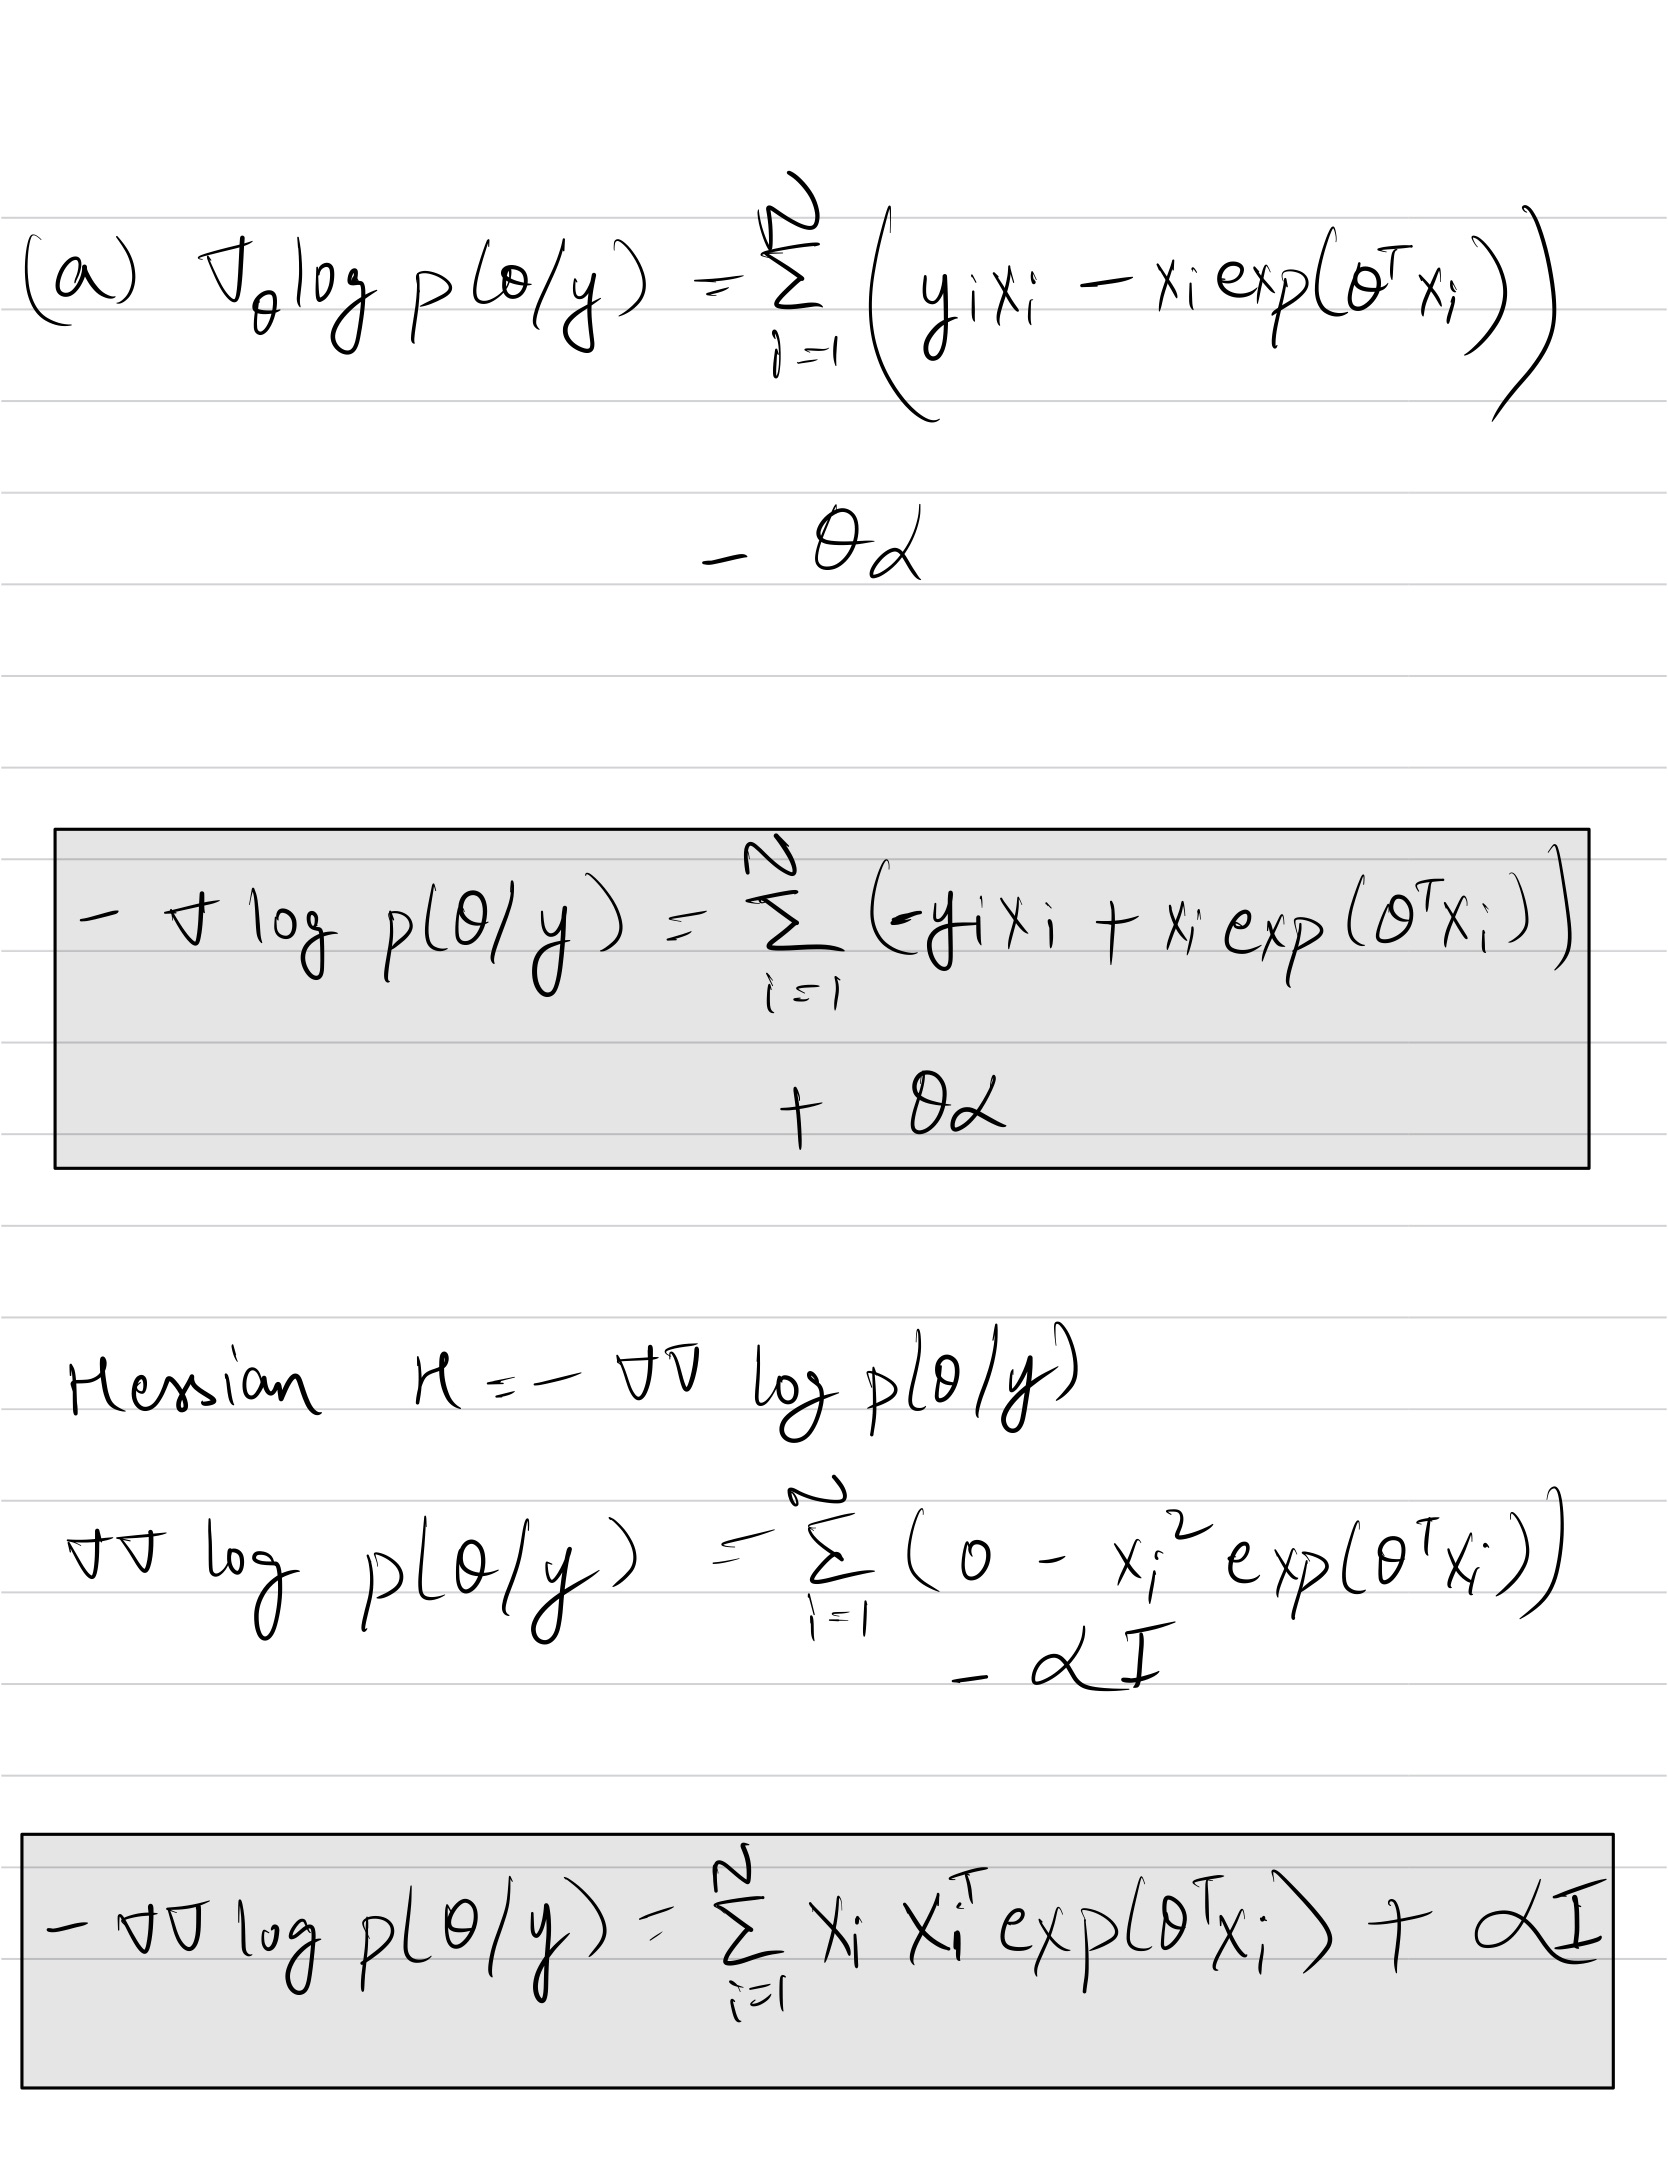 (a) ∇_θ log p(θ/y) = Σ_{i=1}^{N} (y_i x_i − x_i exp(θ^T x_i))
− θα
− ∇ log p(θ/y) = Σ_{i=1}^{N} (−y_i x_i + x_i exp(θ^T x_i))
+ θα
Hessian H = − ∇∇ log p(θ/y)
∇∇ log p(θ/y) = Σ_{i=1}^{N} (0 − x_i^2 exp(θ^T x_i))
− αI
− ∇∇ log p(θ/y) = Σ_{i=1}^{N} x_i x_i^T exp(θ^T x_i) + αI